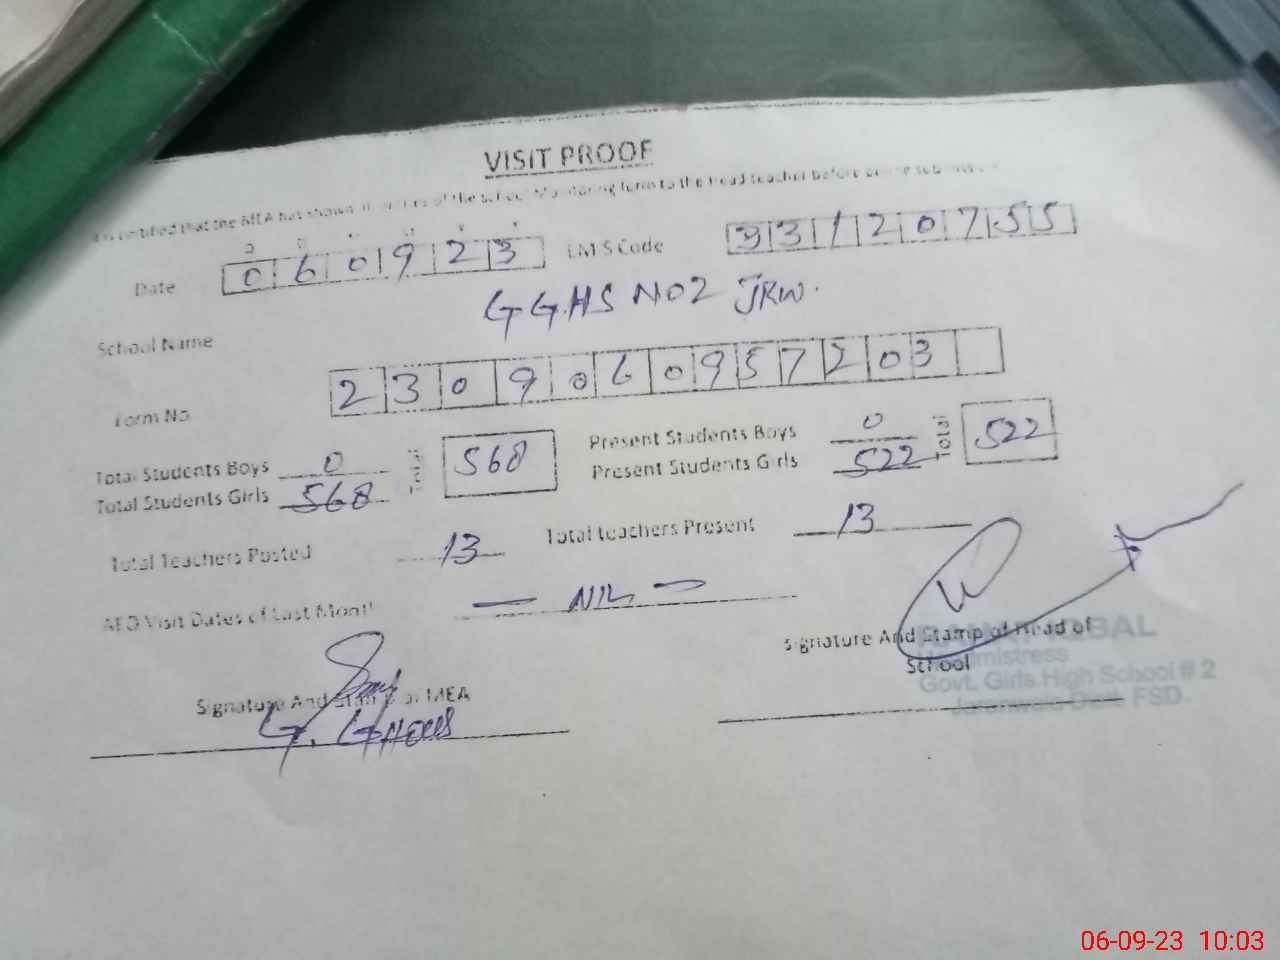 VISIT PROOF
certified that the MEA has shown of the school Monitoring form to the Head teacher before
Date 060923 EMIS Code 33120755
School Name GGHS NO2 JRW.
Form No 2309060957203
Total Students Boys 0 Total 568 Present Students Boys 0 Total 522
Total Students Girls 568 Present Students Girls 522
Total Teachers Posted 13 Total teachers Present 13
AEO Visit Dates of Last Month — NIL —
Signature And Stamp of Head of
School
IQBAL
Headmistress
Govt. Girls High School # 2
FSD.
Signature And Stamp of MEA
G. GHOUS
06-09-23 10:03